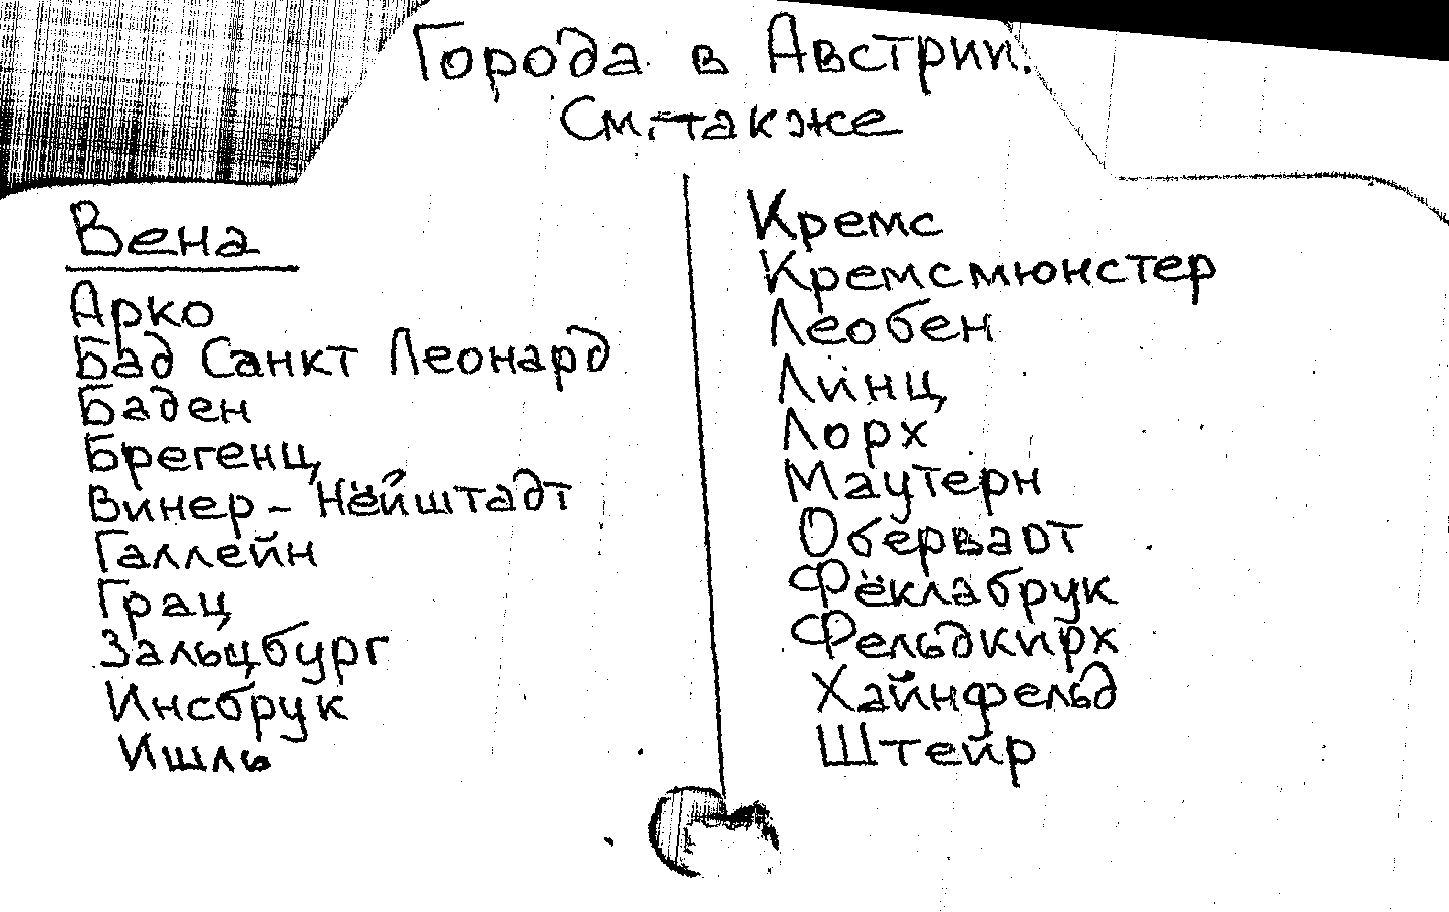 Города в Австрии.
См. также
Вена
Арко
Бад Санкт Леонард
Баден
Брегенц
Винер-Нёйштадт
Галлейн
Грац
Зальцбург
Инсбрук
Ишль
Кремс
Кремсмюнстер
Леобен
Линц
Лорх
Маутерн
Оберварт
Фёклабрук
Фельдкирх
Хайнфельд
Штейр